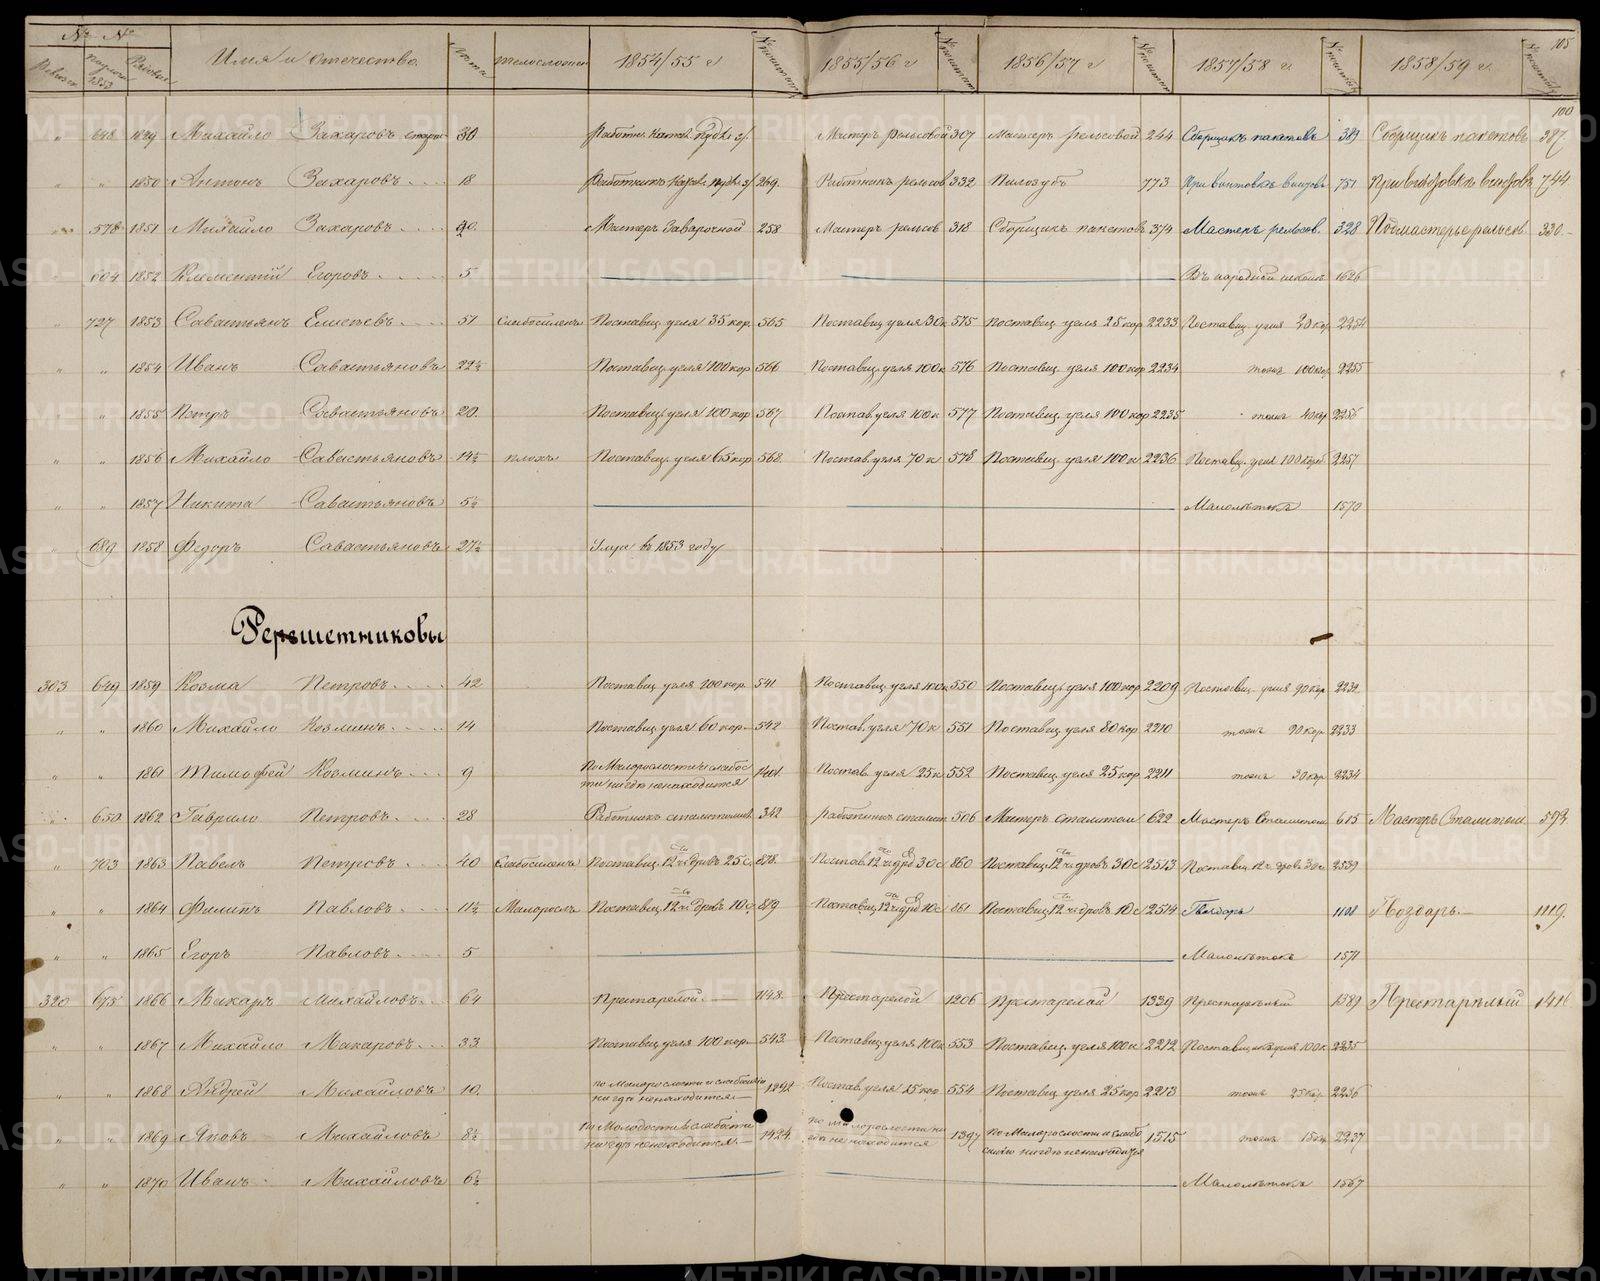 № №
Ревизск. подуш. 1853 Рядовые Имя и Отчество Лета телосложен. 1854/55 г № поштат. 1855/56 г № поштат. 1856/57 г № поштат. 1857/58 г. № поштат. 1858/59 г. № поштат.
105
100
" 648 1849 Михайло Захаровъ старш. 30 Мастеръ рельсовой 307 Мастеръ рельсовой 244 Сборщикъ пакетовъ 389 Сборщикъ пакетовъ 387
" " 1850 Антонъ Захаровъ 18 269 Работникъ рельсов 332 Пилозубъ 773 751 744
" 578 1851 Михайло Захаровъ Мастеръ Заварочной 258 Мастеръ рельсов 318 Сборщикъ пакетовъ 374 Мастеръ рельсов. 328 Подмастерье рельсов 330
" 604 1852 Клементий Егоровъ 5 Въ народной школѣ 1626
" 727 1853 Савастьянъ Елисѣевъ 51 Слабосиленъ Поставщ. угля 35 кор. 565 Поставщ. угля 30 к 575 Поставщ. угля 25 кор 2233 Поставщ. угля 20 кор 2254
" " 1854 Иванъ Савастьяновъ 22½ Поставщ. угля 100 кор 566 Поставщ. угля 100 к 576 Поставщ. угля 100 кор 2234 тоже 100 кор 2255
" " 1855 Петръ Савастьяновъ 20 Поставщ. угля 100 кор 567 Постав. угля 100 к 577 Поставщ. угля 100 кор 2235 тоже 40 кор 2256
" " 1856 Михайло Савастьяновъ 14½ плохъ Поставщ. угля 65 кор 568 Постав. угля 70 к 578 Поставщ. угля 100 к 2236 Поставщ. угля 100 короб 2257
" " 1857 Никита Савастьяновъ 5½ Малолѣтокъ 1570
" 689 1858 Федоръ Савастьяновъ 27½ Умре въ 1853 году
Терешетниковы
303 649 1859 Козма Петровъ 42 Поставщ. угля 100 кор. 541 Поставщ. угля 100 к 550 Поставщ. угля 100 кор 2209 Поставщ. угля 90 кор 2232
" " 1860 Михайло Козминъ 14 Поставщ. угля 60 кор. 542 Постав. угля 70 к 551 Поставщ. угля 80 кор 2210 тоже 90 кор 2233
" " 1861 Тимофей Козминъ 9 По Малорослости и слабости нигдѣ ненаходится 1401 Постав. угля 25 к 552 Поставщ. угля 25 кор 2211 тоже 30 кор 2234
" 650 1862 Гаврило Петровъ 28 Работникъ 342 506 Мастеръ 622 Мастеръ 615 Мастеръ 593
" 703 1863 Павелъ Петровъ 40 Слабосиленъ Поставщ. 12 ти дровъ 25 с. 878 Постав. 12 ти 30 с 860 Поставщ. 12 ти дровъ 30 с 2513 Поставщ. 12 ч. дровъ 30 с 2539
" " 1864 Филипъ Павловъ 11½ Малорослъ Поставщ. 12 ти дровъ 10 с 879 Поставщ. 12 ти 10 с 861 Поставщ. 12 ти дровъ 10 с 2514 Гвоздарь 1108 Гвоздарь 1119
" " 1865 Егоръ Павловъ 5 Малолѣтокъ 1571
320 675 1866 Макаръ Михайловъ 64 Престарелой 1143 Престарелой 1206 Престарелой 1339 Престарѣлый 1389 Престарѣлый 141
" " 1867 Михайло Макаровъ 33 Поставщ. угля 100 кор. 543 Поставщ. угля 100 к 553 Поставщ. угля 100 к 2212 Поставщикъ угля 100 к 2235
" " 1868 Андрей Михайловъ 10 по Малорослости и слабости нигдѣ ненаходится 1292 Постав. угля 15 кор 554 Поставщ. угля 25 кор 2213 тоже 25 кор 2236
" " 1869 Яковъ Михайловъ 8½ По Молодости и слабости нигдѣ ненаходится 1424 по Малорослости нигдѣ не находится 1397 по Малорослости и слабосилию нигдѣ ненаходится 1515 тоже 15 кор 2237
" " 1870 Иванъ Михайловъ 6½ Малолѣтокъ 1567
METRIKI.GASO-URAL.RU